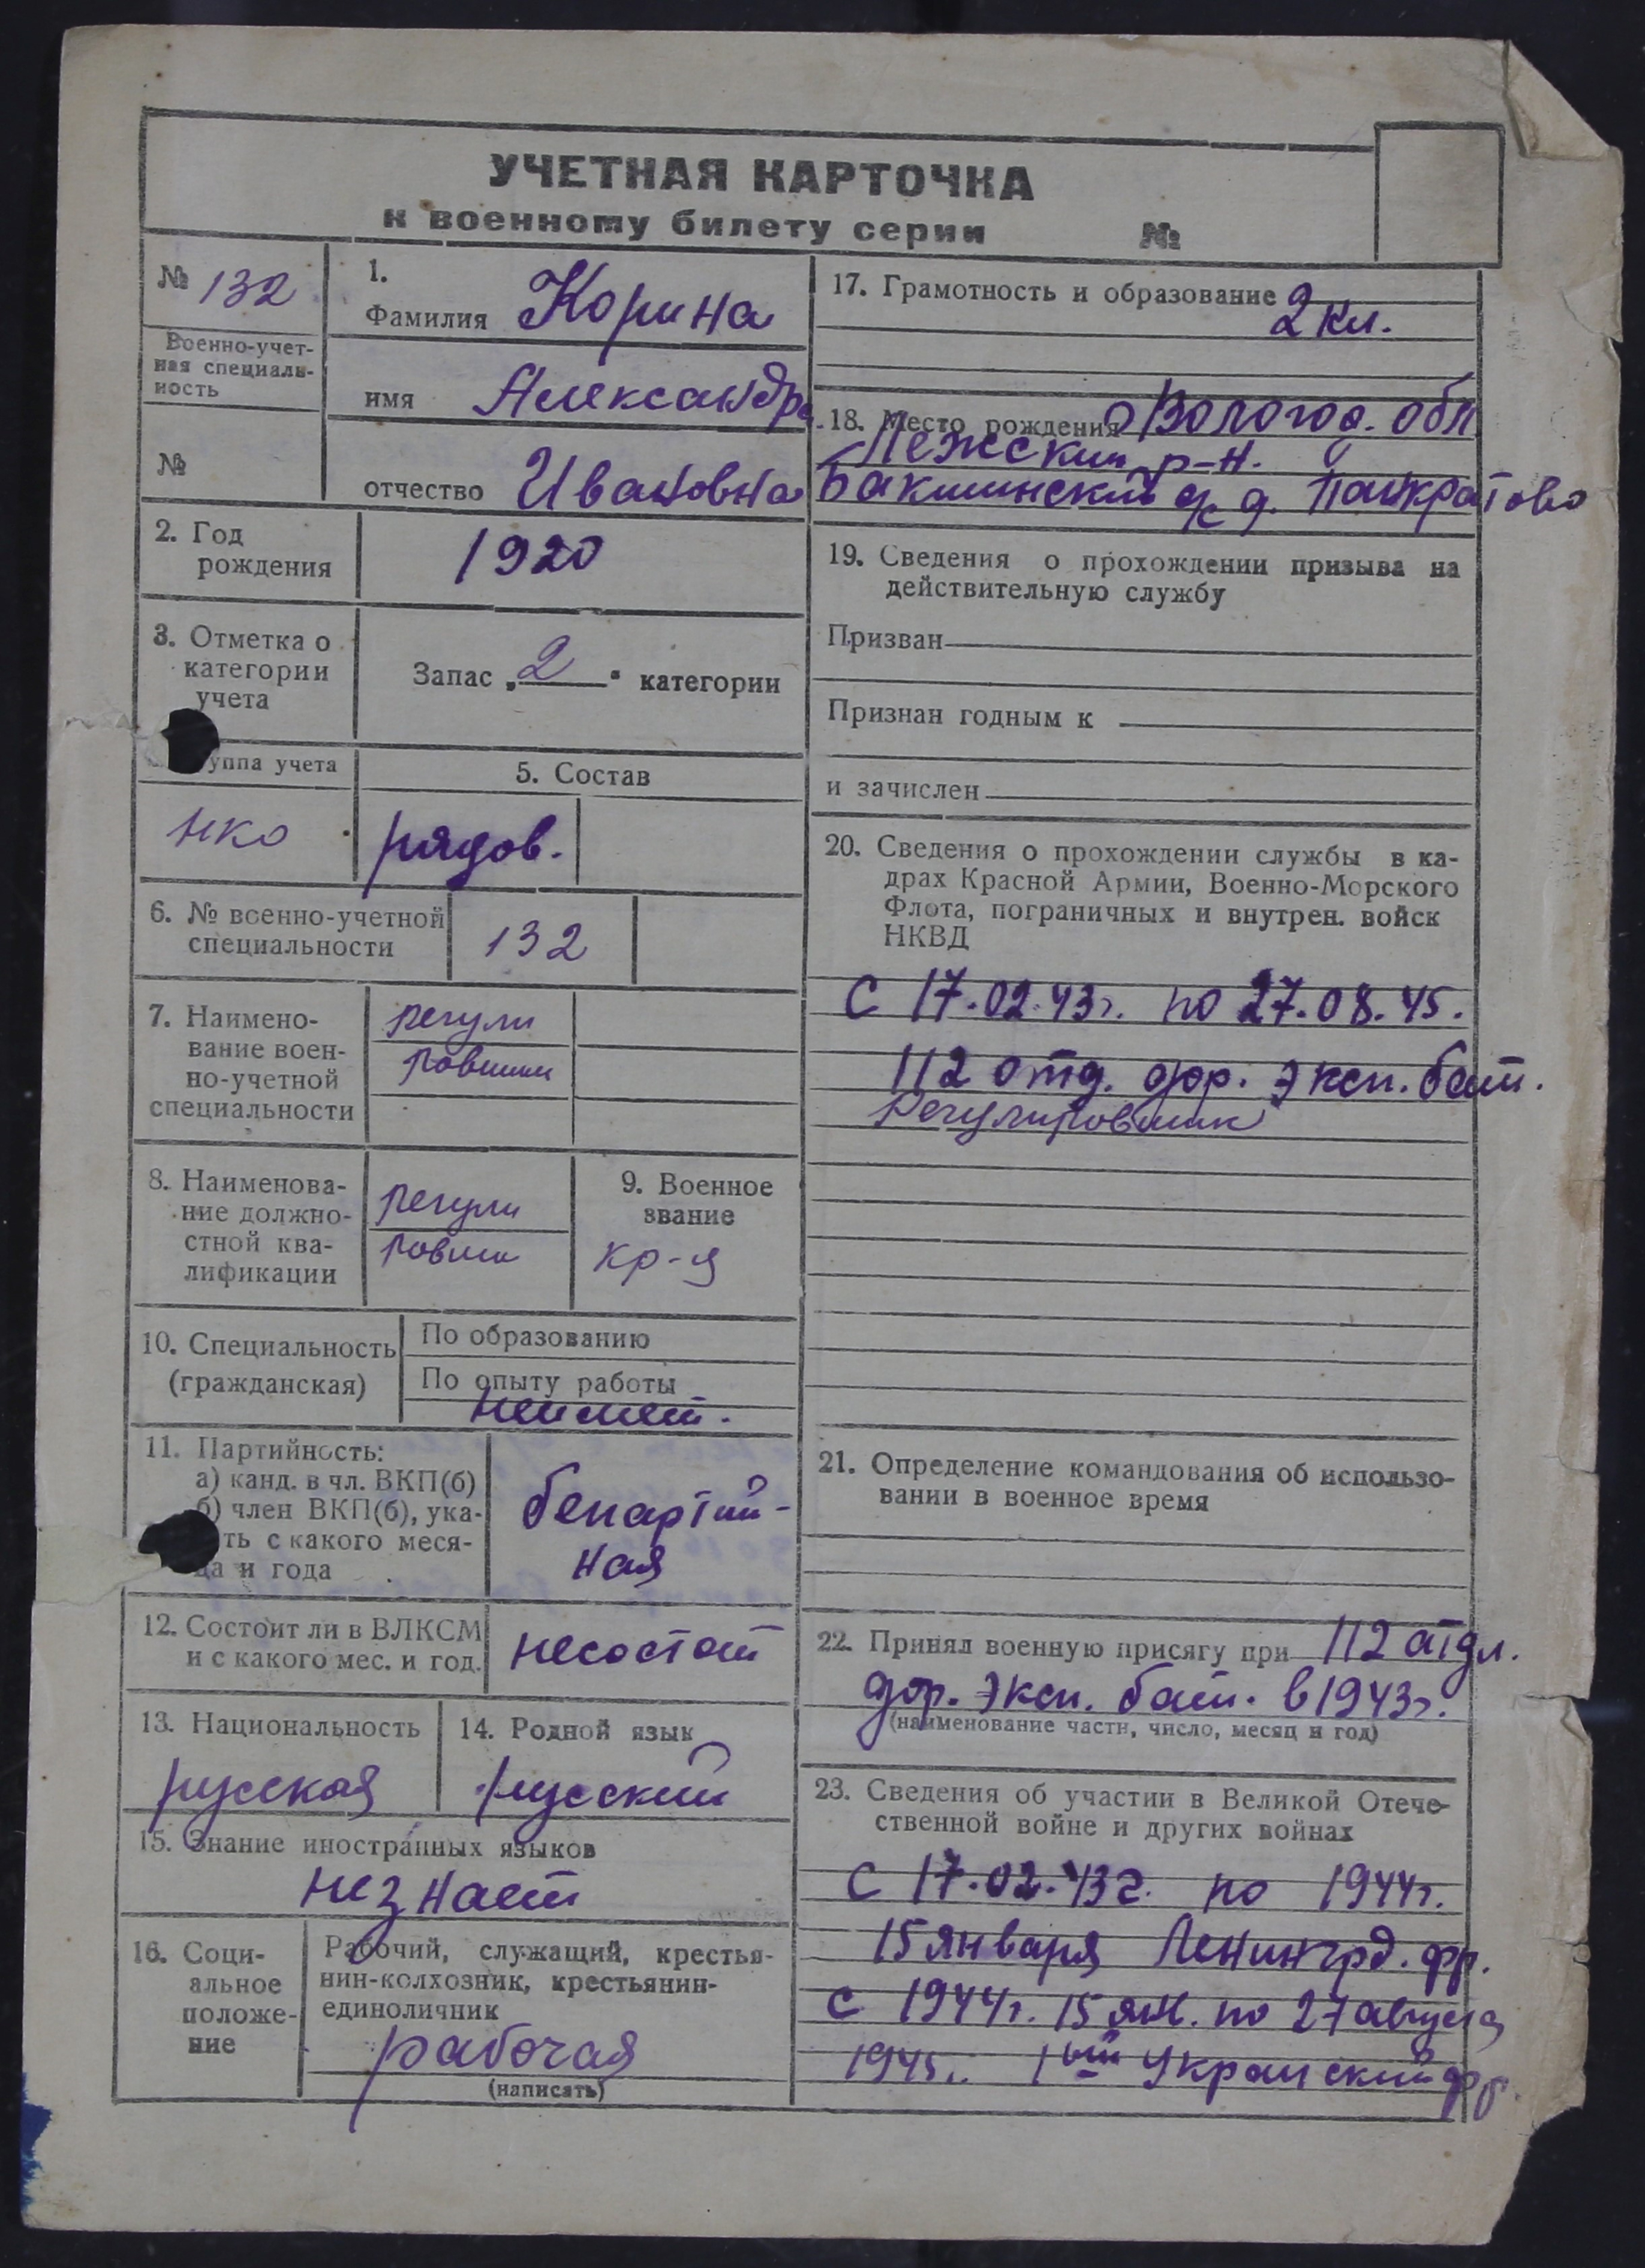 УЧЕТНАЯ КАРТОЧКА
к военному билету серии №
№ 132
Военно-учет-
ная специаль-
ность
№
1.
Фамилия Корина
имя Александра
отчество Ивановна
2. Год
рождения
1920
3. Отметка о
категории
учета
Запас „2" категории
уппа учета
нко
5. Состав
рядов.
6. № военно-учетной
специальности
132
7. Наимено-
вание воен-
но-учетной
специальности
регули
ровщик
8. Наименова-
ние должно-
стной ква-
лификации
регули
ровщи
9. Военное
звание
кр-я
10. Специальность
(гражданская)
По образованию
По опыту работы
неимеет.
11. Партийность:
а) канд. в чл. ВКП(б)
б) член ВКП(б), ука-
ть с какого меся-
ца и года
беспартий-
ная
12. Состоит ли в ВЛКСМ
и с какого мес. и год.
несостоит
13. Национальность
русская
14. Родной язык
русский
15. Знание иностранных языков
незнает
16. Соци-
альное
положе-
ние
Рабочий, служащий, крестья-
нин-колхозник, крестьянин-
единоличник
рабочая
(написать)
17. Грамотность и образование 2 кл.
18. Место рождения Вологод. обл
Лежский р-н.
Бакшинский с/с д. Панкратово
19. Сведения о прохождении призыва на
действительную службу
Призван
Признан годным к
и зачислен
20. Сведения о прохождении службы в ка-
драх Красной Армии, Военно-Морского
Флота, пограничных и внутрен. войск
НКВД
С 17.02.43г. по 27.08.45.
112 отд. дор. эксп. бат.
Регулировщик
21. Определение командования об использо-
вании в военное время
22. Принял военную присягу при 112 отдл.
дор. эксп. бат. в 1943г.
(наименование части, число, месяц и год)
23. Сведения об участии в Великой Отече-
ственной войне и других войнах
С 17.02.43г. по 1944г.
15 января Ленингрд. фр.
с 1944г. 15 янв. по 27 августа
1945г. 1ый Украиский фр.